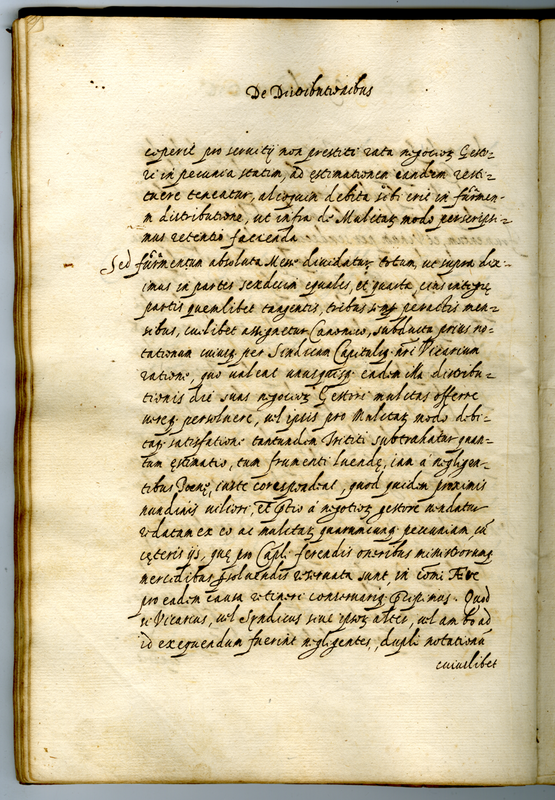 De Distributionibus
coperit pro seruitij non prestiti rata negotior Gesto-
ri in pecunia statim, ad estimationem eandem resti-
tuere teneatur, alioquin debita sibi erit in frumen-
ti distributione, ut infra de Mulctar modo perscripsi-
mus retentio facienda
Sed frumentum absoluta Messe diuidatur totum, ut supra dix-
imus in partes sexdecim equales, et quarta eius integrę
partis quemlibet tangentis, tribus peractis men-
sibus, cuilibet assignetur Canonico, subducta prius no-
tationum cuiusq per Sindicum Capitulrq nri Vicarium
ratione, quo ualeat unusquisq eadem illa distribu-
tionis die suas negotior Gestori mulctas offerre
uereq persoluere, uel ipsis pro Mulctar modo debi-
tar satisfatione tantundem Tritici subtrahatur quan-
tum ęstimatio, tum frumenti luendę, iam à negligen-
tibus Poenę, iuste corespondeat, quod quidem proximis
nundinis uiliori, et ptio à negotior gestore uendatur
redatum ex eo ac mulctar quarumcunq pecuniam, cū
cęteris ijs, quę pro Capli ferendis oneribus ministrorumq
mercedibus psoluendis reseruata sunt, in comi Ære
pro eadem causa retineri conseruariq Cupimus. Quod
si Vicarius, uel Syndicus siue ipsor alter, uel ambo ad
id exequendum fuerint negligentes, dupli notationū
cuiuslibet